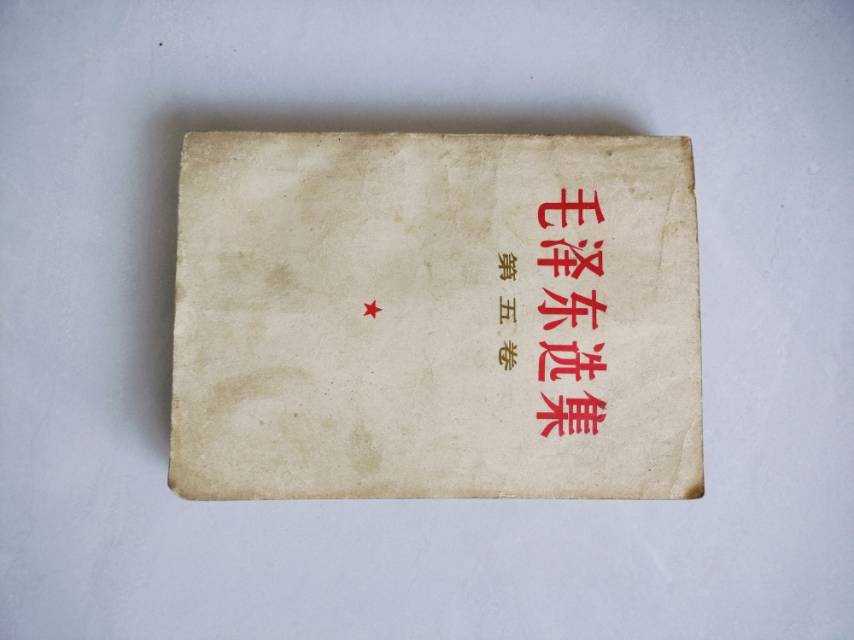 毛泽东选集
第五卷